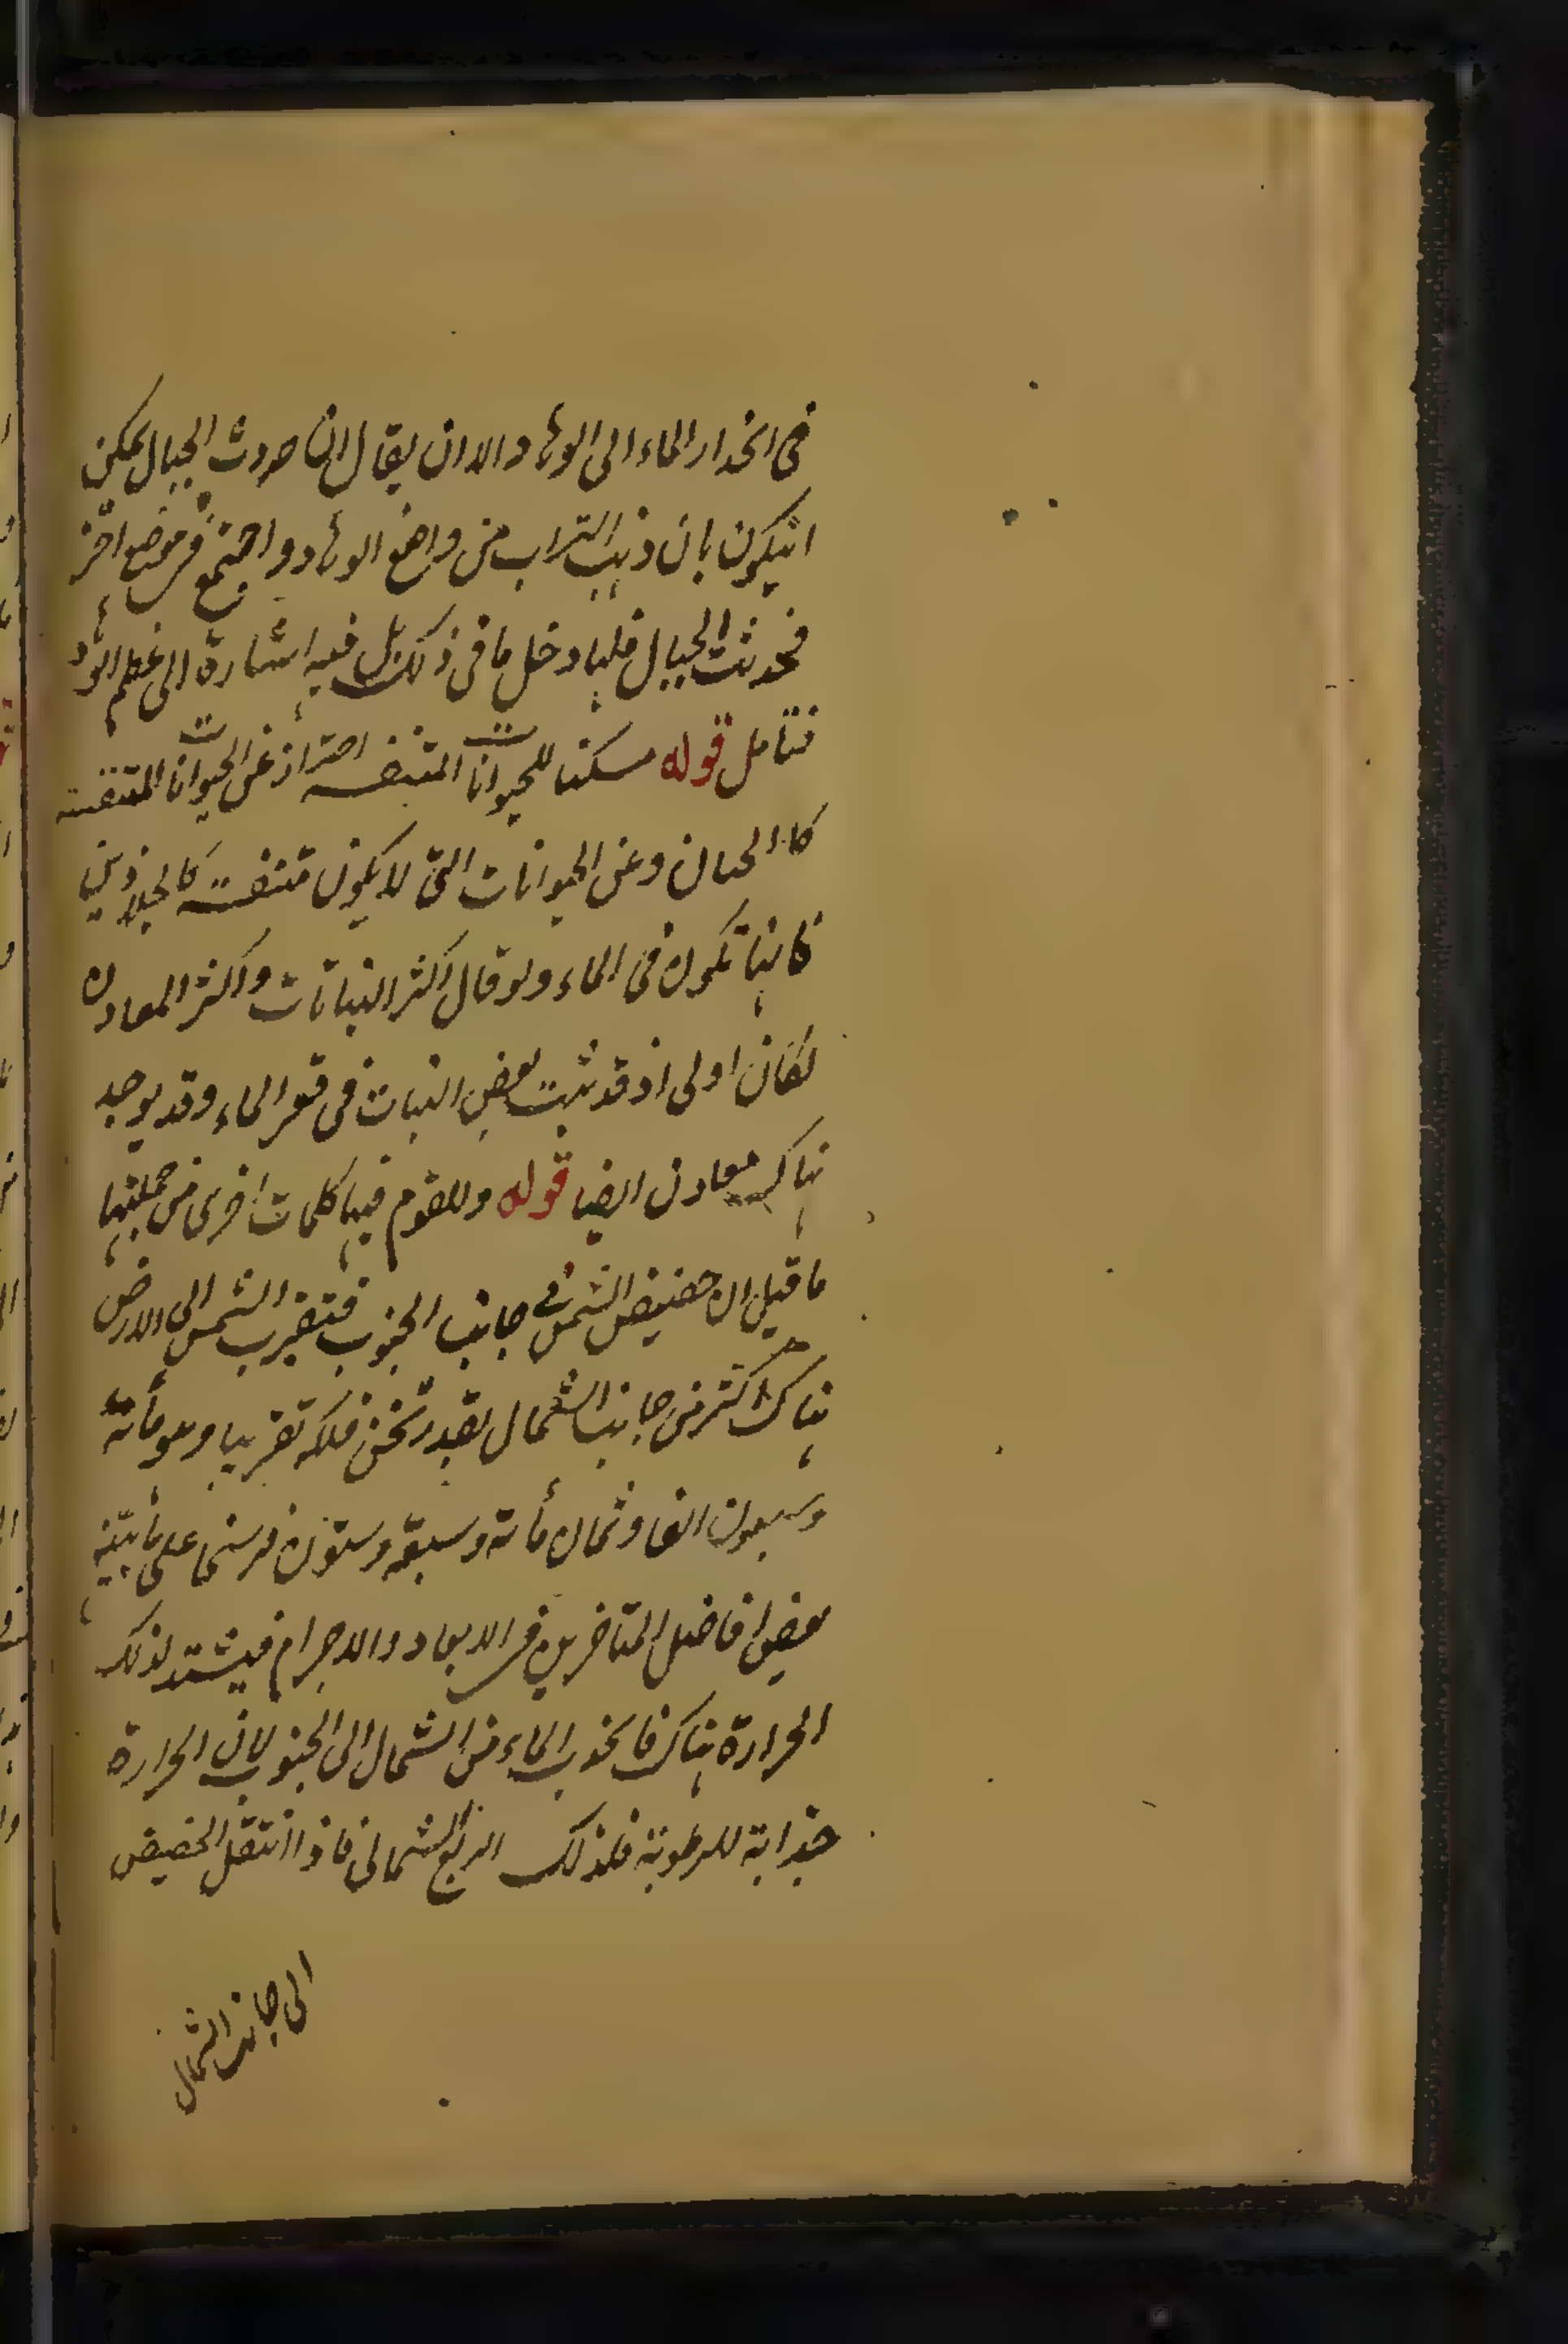 فى انحدار الماء الى الوهاد الا ان يقال ان حدوث الجبال يمكن
ان يكون بان ذهب التراب من مواضع الوهاد واجتمع فى موضع اخر
فحدثت الجبال فلها دخل ما فى ذلك بل فيه اشارة الى عظم الوهاد
فتامل قوله مسكنا للحيوانات المتنفسة احتراز عن الحيوانات المتنفسة
كالحيتان وعن الحيوانات التى لا يكون متنفسة
فانها تكون فى الماء ولو قال اكثر النباتات واكثر المعادن
لكان اولى اذ قد ثبت بعض النبات فى قعر الماء وقد يوجد
هناك معادن ايضا قوله وللقوم فيها كلمات اخرى من جملتها
ما قيل ان حضيض الشمس فى جانب الجنوب فتقرب الشمس الى الارض
هناك اكثر من جانب الشمال بقدر ثخن فلكه تقريبا وهو مأته
وسبعون الفا وثمان مأته وسبعة وستون فرسخا على ما بينه
بعض افاضل المتاخرين فى الابعاد والاجرام فيشتد لذلك
الحرارة هناك فانجذب الماء من الشمال الى الجنوب لان الحرارة
جذابة للرطوبة فلذلك الربع الشمالى فاذا انتقل الحضيض
الى جانب الشمال